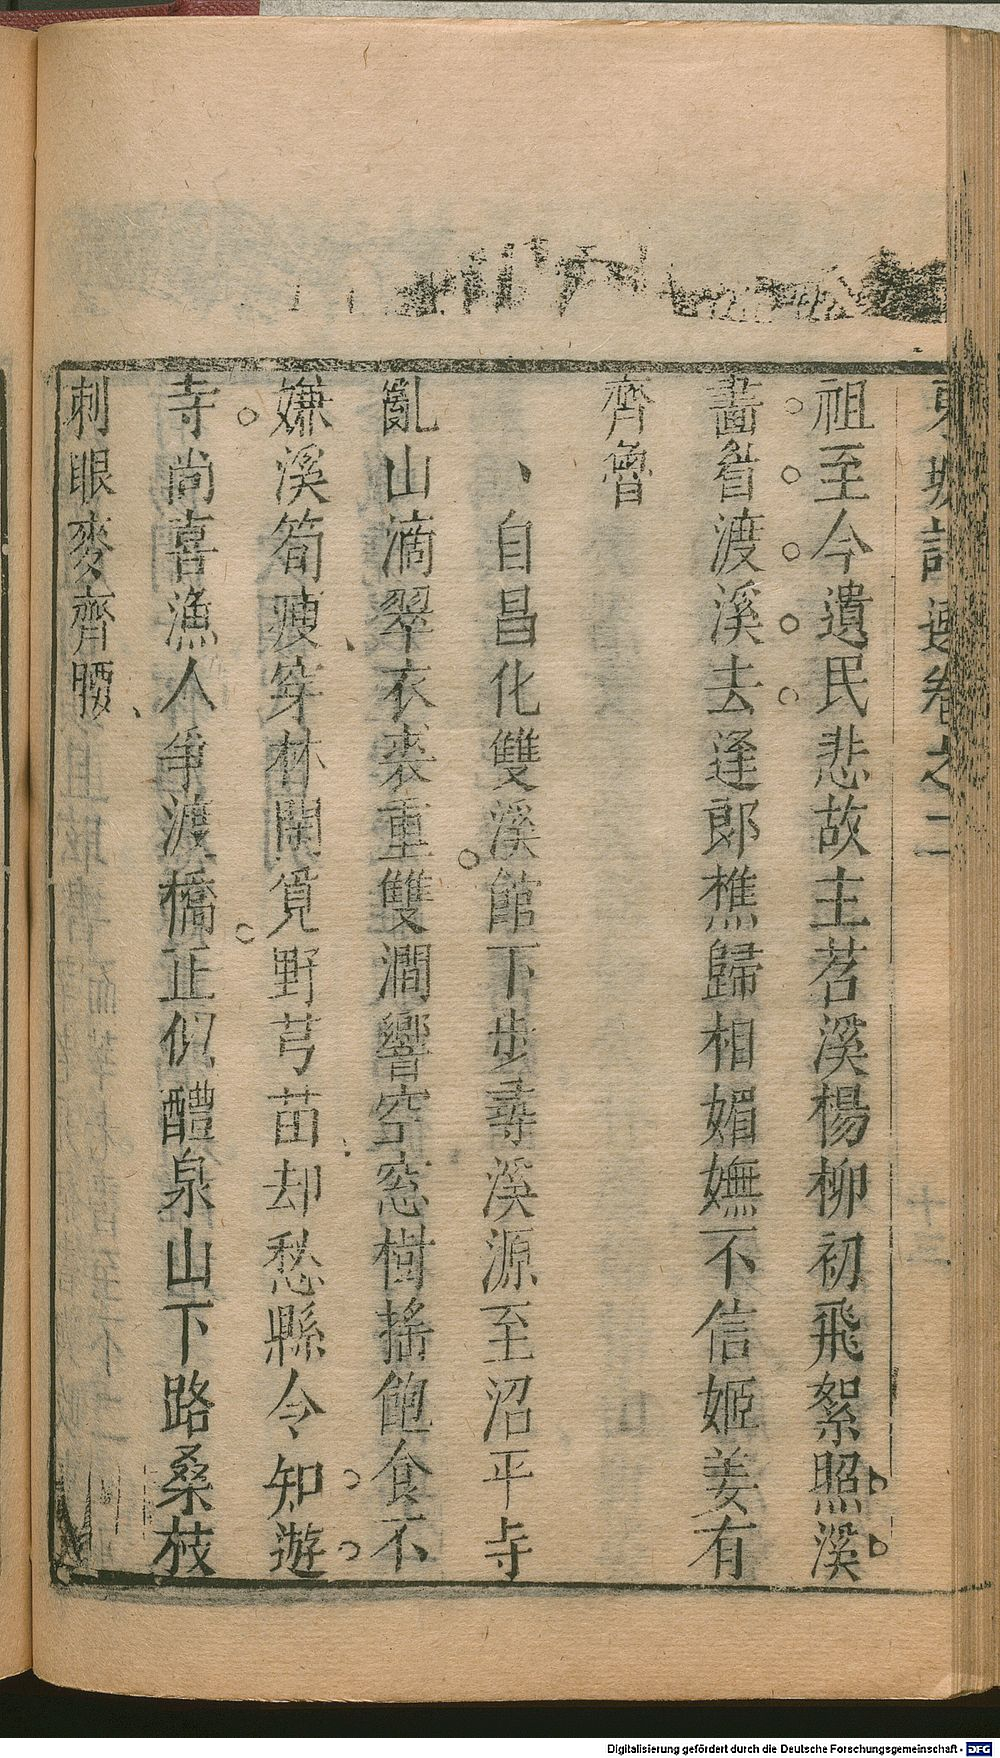 東坡詩選卷之二
十三
祖至今遺民悲故主苕溪楊柳初飛絮照溪
畵眉渡溪去逢郎樵歸相媚嫵不信姬姜有
齊魯
自昌化雙溪館下步尋溪源至沼平寺
亂山滴翠衣裘重雙澗響空窓樹搖飽食不
嫌溪筍痩穿林閒覓野芎苗却愁縣令知遊
寺尚喜漁人爭渡橋正似醴泉山下路桑枝
刺眼麥齊腰
Digitalisierung gefördert durch die Deutsche Forschungsgemeinschaft - DFG